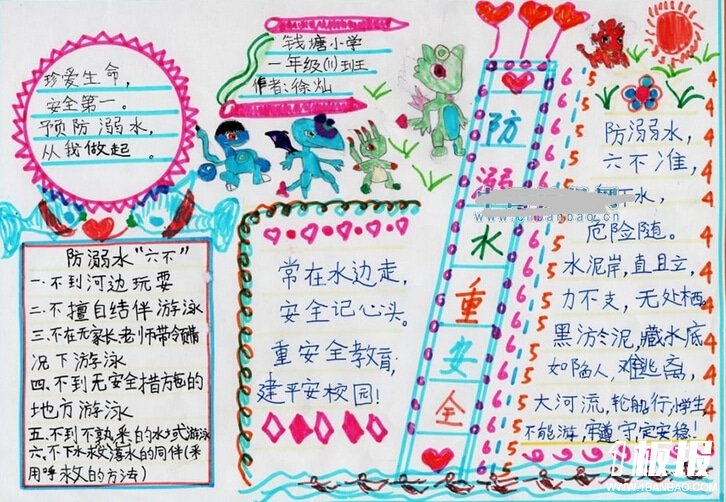 珍爱生命,
安全第一。
预防溺水,
从我做起。
钱塘小学
一年级(11)班
作者:徐灿
防溺水"六不"
一.不到河边玩耍
二.不擅自结伴游泳
三.不在无家长老师带领情
况下游泳
四.不到无安全措施的
地方游泳
五.不到不熟悉的水域游泳
六.不下水救落水的同伴(采
用呼救的方法)
常在水边走,
安全记心头。
重安全教育,
建平安校园!
防溺水重安全
防溺水,
六不准,
水,
危险随。
水泥岸,直且立,
力不支,无处栖。
黑淤泥,藏水底
如陷人,难逃离,
大河流,轮船行,小学生
不能游,牢遵守定安稳!
www.1banbao.cn
板报
WWW.1BANBAO.COM